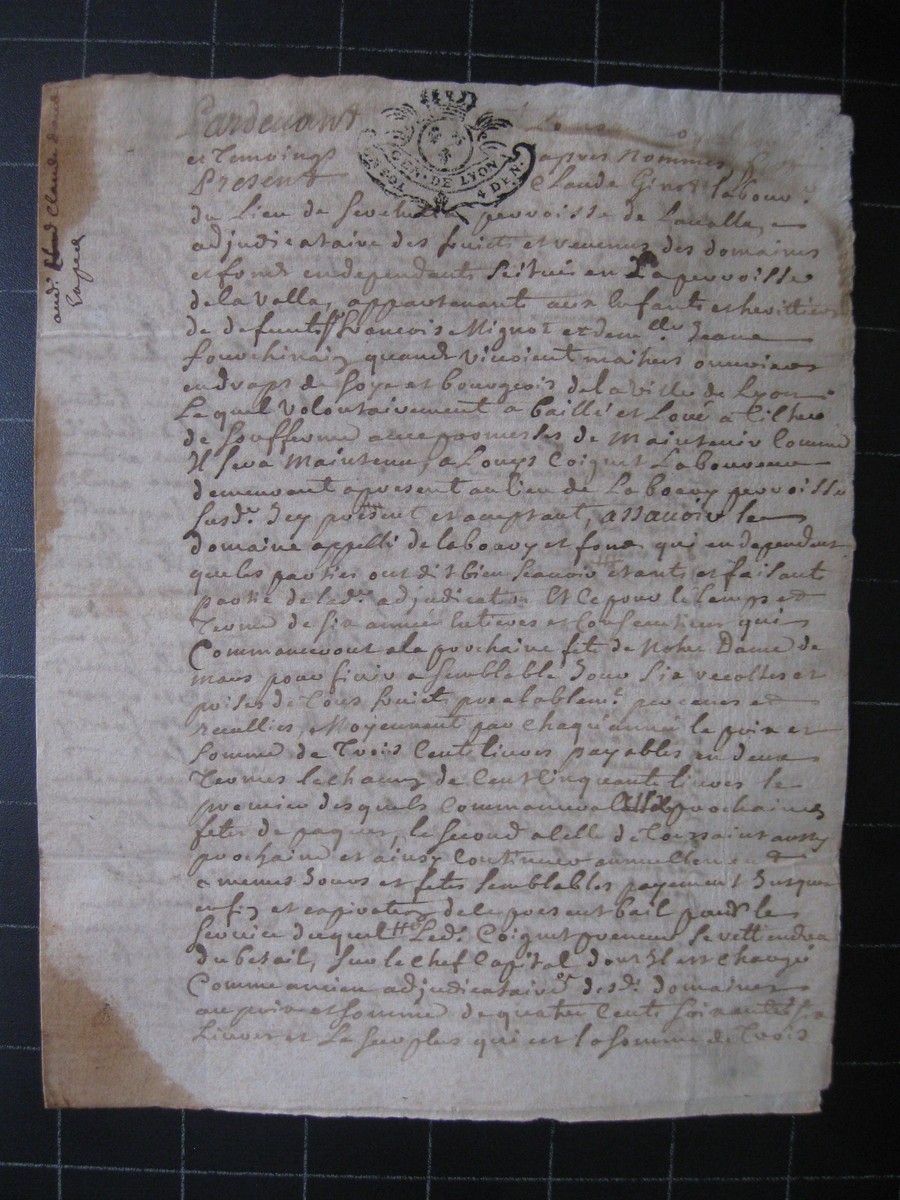 Pardevant
et Temoings apres nommes
Present Claude Ginot labour.
du Lieu de perroisse de Lavalla,
adjudicataire des fruits et revenus des domaines
et fonds en dependants scitués en La perroisse
de la valla, appartenant aux Enfants et herittiers
de defunts Sr francois Mignot et demlle Jeanne
quand vivoient maitres ouvriers
en draps de soye et bourgeois de la ville de Lyon
Lequel volontairement a baillé et Loué a tiltre
de soufferme avec promesses de Maintenir Comme
Il sera Maintenu, a Louys Coignet Laboureur
demeurant apresent au lieu de La boary perroisse
susd. Icy present et acceptant, assavoir le
domaine appellé de la boary et fonds qui en dependent
que les parties ont dit bien scavoir étants et faisant
partie de lad. adjudicat.on Et Ce pour le temps et
Terme de six années Entieres et Consecutives qui
Commanceront a la prochaine fete de Notre Dame de
mars pour finir a semblable Jour six recoltes et
prises de Tous fruits prealablem.t perceues et
recullies, Moyennant par chaqu'année le prix et
somme de Trois Cents livres payables en deux
Termes le chacun de Cent Cinquante livres le
premier desquels Commancera prochaines
fetes de paques, le second a Celle de Toussaint aussy
prochaine et ainsy Continuer annuellement
a memes Jours et fetes semblables payement Jusques
en fin et expiration de le present bail pendt le
service duquel Led. Coignet preneur
du betail, sur le chef Capital dont Il est chargé
Comme ancien adjudicataire desd. domaines
au prix et somme de quatre Cents soixante six
Livres et Le surplus qui est la somme de Trois
GEN. DE LYON
4 DEN.
aud. Claude